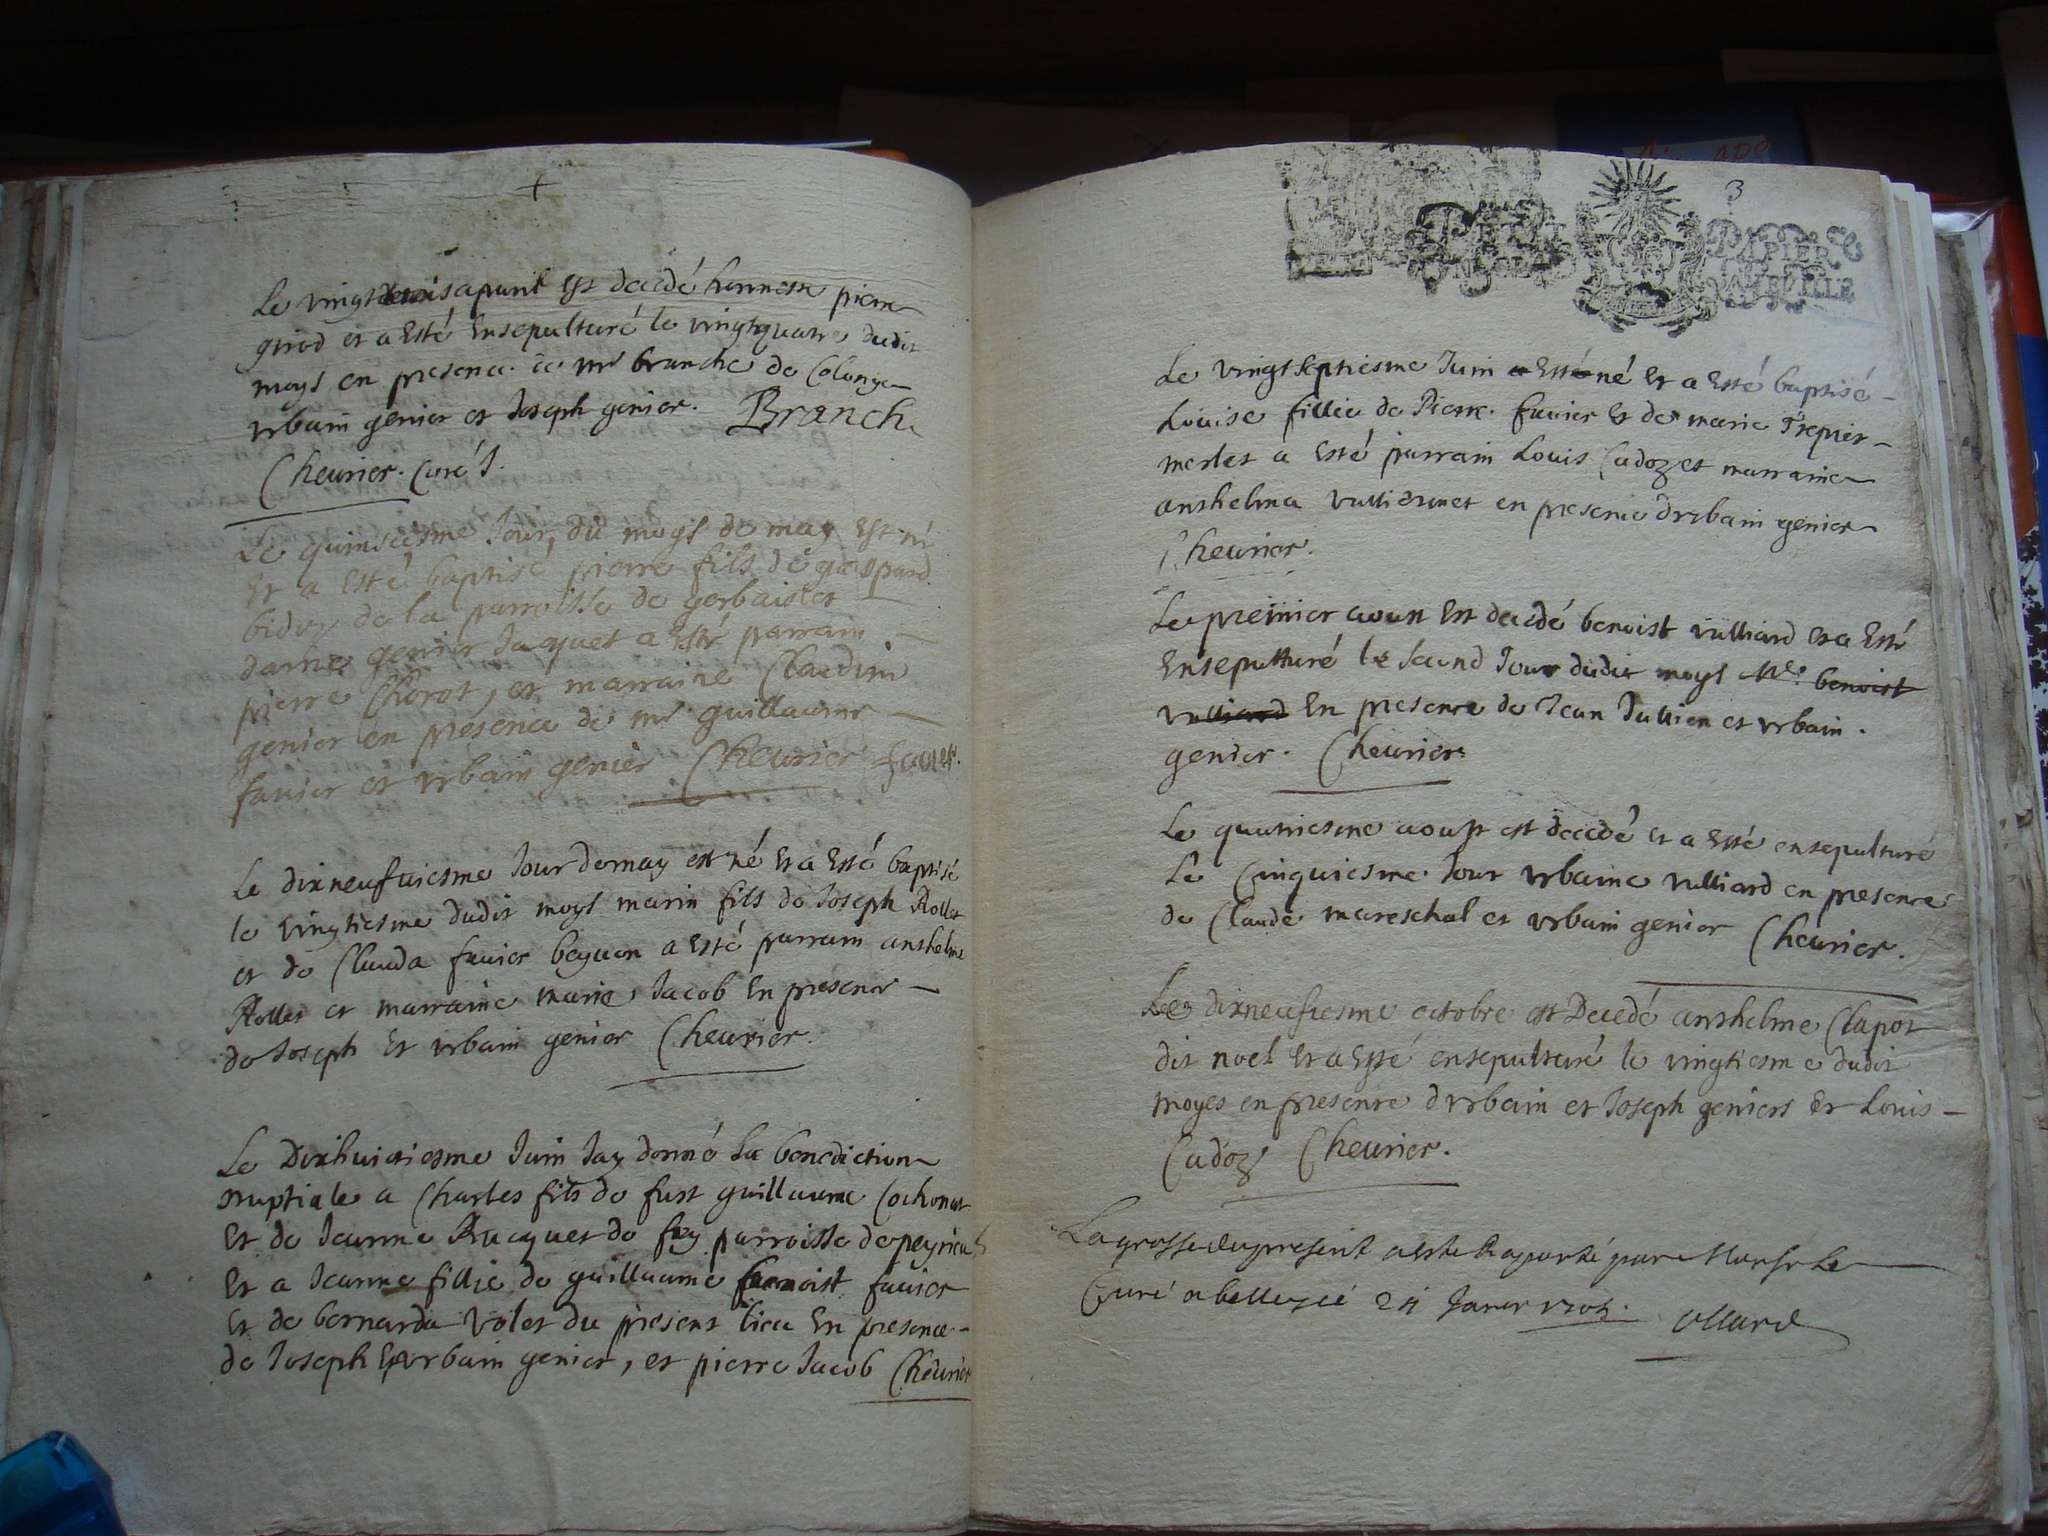 Le vingt trois apuril est decedé honneste pierre
girod et a esté ensepulturé le vingtquatre dudit
moys en presence de mr branche de Colonge
vrbain genier et Joseph genier. Branche
Cheurier. Curé
Le quinsiesme Jour du moys de may est né
et a esté baptisé pierre fils de gaspard
biduz de la parroisse de gerbaist et
genier Jaquet a esté parrain
pierre Chorot, et marraine Claudine
genier en presence de mr guillaume
fauier et vrbain genier Cheurier fauier
Le dixneufuiesme Jour de may est né et a esté baptisé
le vingtiesme dudit moys marin fils de Joseph Rollet
et de Clauda fauier beguon a esté parrain anthelme
Rollet et marraine marie Jacob en presence
de Joseph et vrbain genier Cheurier.
Le dixhuictiesme Juin Jay donné la benediction
nuptiale a Charles fils de fust guillaume Cochonat
et de Jeanne Rucquet de fey parroisse de peyrieu
et a Jeanne fillie de guillaume fauier
et de bernarda volet du present lieu en presence
de Joseph et vrbain genier, et pierre Jacob Cheurier
3
PETIT PAPIER
Le vingt septiesme Juin a esté né et a esté baptisé
Louise fillie de Pierre fauier et de marie Trepier
merlet a esté parrain Louis Cadoz et marraine
anthelma vulliermet en presence drvbain genier
Cheurier.
Le premier aoust est decedé benoist vulliard et a esté
ensepulturé le second Jour dudit moys benoist
vulliard en presence de Jean Jullien et vrbain
genier. Cheurier.
Le quatriesme aoust est decedé et a esté ensepulturé
le Cinquiesme Jour vrbaine vulliard en presence
de Claude mareschal et vrbain genier Cheurier.
Le dixneufiesme octobre est Decedé anthelme Clapot
dit noel et a esté ensepulturé le vingtiesme dudit
moyes en presence d vrbain et Joseph geniers et Louis
Cadoz Cheurier.
La grosse du present a esté Raporté par Monsr le
Curé a belley le 24 Janvier